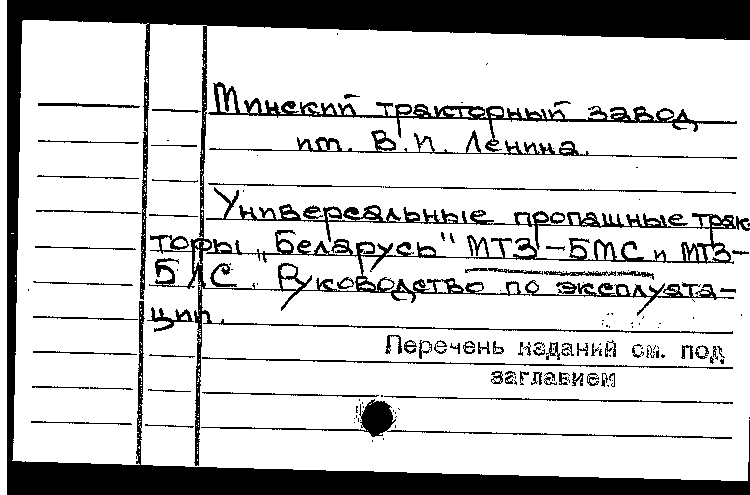 Минский тракторный завод
им. В.И. Ленина.
Универсальные пропашные трак
торы „Беларусь" МТЗ-5МС и МТЗ-
5ЛС. Руководство по эксплуата-
ции.
Перечень изданий см. под
заглавием